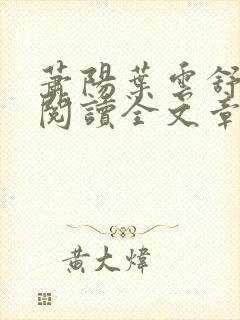 蕭陽葉雲舒
閱讀全文章
黃大煒